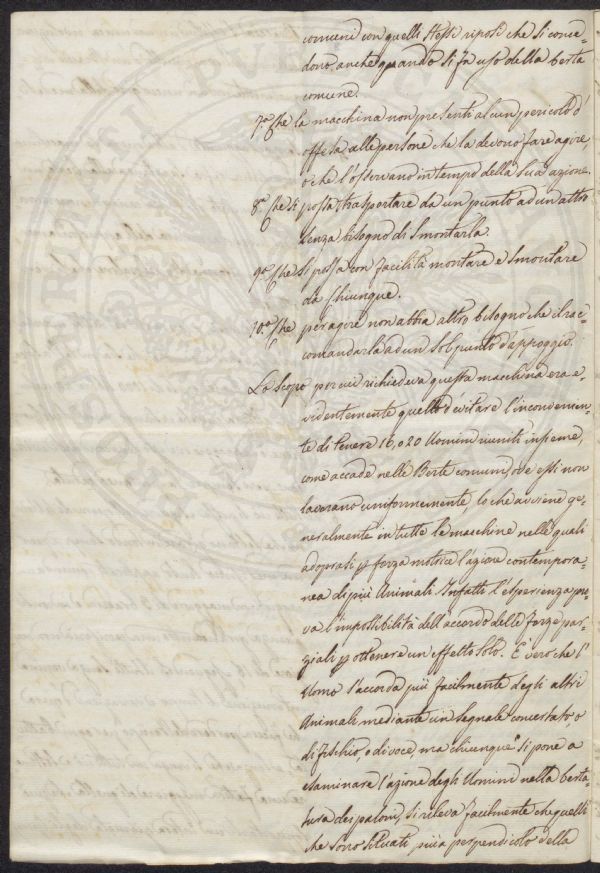 comuni con quelli stessi riposi che si conce-
dono anche quando si fa uso della berta
comune.
7.º Che la macchina non presenti alcun pericolo d'
offesa alle persone che la devono fare agire
o che l'osservano in tempo della sua azione.
8.º Che si possa trasportare da un punto ad un altro
senza bisogno di smontarla.
9.º Che si possa con facilità montare e smontare
da chiunque.
10.º Che per agire non abbia altro bisogno che il rac-
comandarla ad un sol punto d'appoggio.
Lo scopo per cui richiedeva questa macchina era e-
videntemente quello d'evitare l'inconvenien-
te di tenere 16, o 20 Uomini riuniti insieme,
come accade nelle Berte comuni, ove essi non
lavorano uniformemente, lo che avviene ge-
neralmente in tutte le macchine nelle quali
adoprasi p forza motrice l'azione contempora-
nea di più Animali. Infatti l'esperienza pro-
va l'impossibilità dell'accordo delle forze par-
ziali p ottenere un effetto solo. È vero che l'
Uomo s'accorda più facilmente degli altri
Animali mediante un segnale concertato o
di fischio, o di voce, ma chiunque si pone a
esaminare l'azione degli Uomini nella berta-
tura dei paloni, si rileva facilmente che quelli
che sono situati più a perpendicolo della